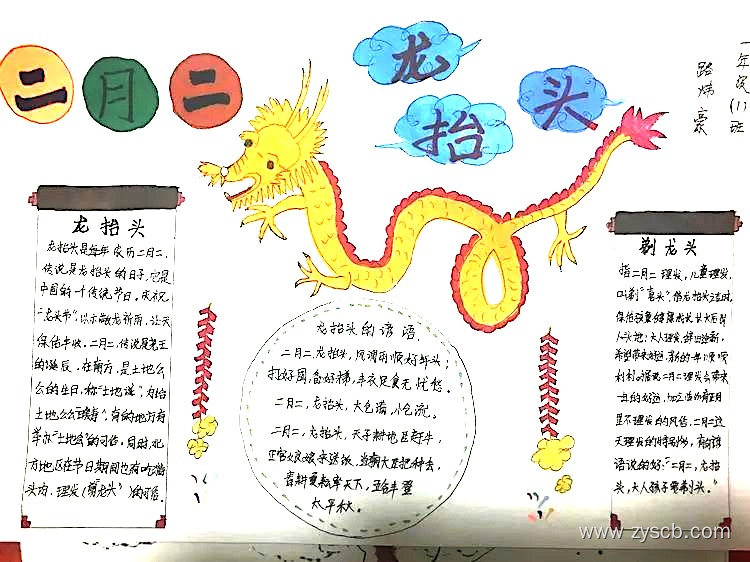 二月二
龙
抬
头
一年级(11)班
路炜豪
龙抬头
龙抬头是每年农历二月二,
传说是龙抬头的日子,它是
中国的一个传统节日。庆祝
"龙头节",以示敬龙祈雨,让天
保佑丰收。二月二,传说是尧王
的诞辰。在南方,是土地公
公的生日,称"土地诞",为给
土地公公"暖寿",有的地方有
举办"土地会"的习俗。同时,北
方地区在节日期间也有吃猪
头肉、理发(剃龙头)的习俗。
龙抬头的谚语。
二月二,龙抬头,风调雨顺好年头;
打好囤,备好梯,丰衣足食无忧愁。
二月二,龙抬头,大仓满,小仓流。
二月二,龙抬头,天子耕地臣赶牛,
正宫娘娘来送饭,当朝大臣把种丢,
春耕夏耘率天下,五谷丰登
太平秋。
剃龙头
指二月二理发,儿童理发,
叫剃"喜头",借龙抬头之吉时,
保佑孩童健康成长,长大后出
人头地;大人理发,辞旧迎新,
希望带来好运,新的一年顺顺
利利。据说二月二理发会带来
一年的好运,
里不理发的风俗,二月二这
天理发的特别多,有句俗
语说的好:"二月二,龙抬
头,大人孩子都剃头。"
www.zyscb.com